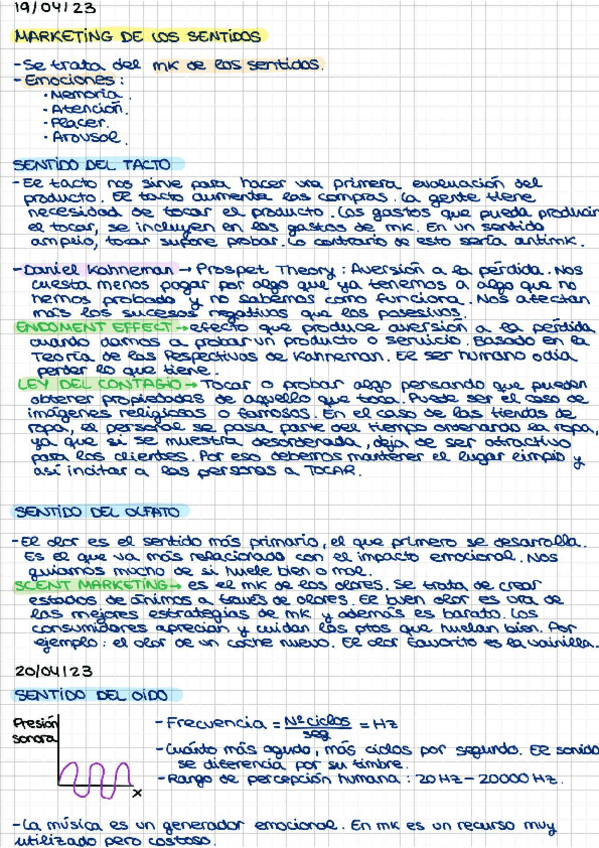 19/04/23
MARKETING DE LOS SENTIDOS
-Se trata del mk de los sentidos.
-Emociones:
·Memoria.
·Atención.
·Placer.
·Arousal.
SENTIDO DEL TACTO
-El tacto nos sirve para hacer una primera evaluación del
producto. El tacto aumenta las compras. La gente tiene
necesidad de tocar el producto. Los gastos que pueda producir
el tocar, se incluyen en los gastos de mk. En un sentido
amplio, tocar supone probar. Lo contrario de esto sería antimk.
-Daniel Kahneman → Prospet Theory: Aversión a la pérdida. Nos
cuesta menos pagar por algo que ya tenemos a algo que no
hemos probado y no sabemos como funciona. Nos afectan
más los sucesos negativos que los posesivos.
ENDOMENT EFFECT → efecto que produce aversión a la pérdida
cuando damos a probar un producto o servicio. Basado en la
Teoría de las Pespectivas de Kahneman. El ser humano odia
perder lo que tiene.
LEY DEL CONTAGIO → Tocar o probar algo pensando que pueden
obtener propiedades de aquello que toca. Puede ser el caso de
imágenes religiosas o famosos. En el caso de las tiendas de
ropa, el personal se pasa parte del tiempo ordenando la ropa,
ya que si se muestra desordenada, deja de ser atractivo
para los clientes. Por eso debemos mantener el lugar limpio y
así incitar a las personas a TOCAR.
SENTIDO DEL OLFATO
-El olor es el sentido más primario, el que primero se desarrolla.
Es el que va más relacionado con el impacto emocional. Nos
guiamos mucho de si huele bien o mal.
SCENT MARKETING → es el mk de los olores. Se trata de crear
estados de ánimos a través de olores. El buen olor es una de
las mejores estrategias de mk y además es barato. Los
consumidores aprecian y cuidan los ptos que huelan bien. Por
ejemplo: el olor de un coche nuevo. El olor favorito es la vainilla.
20/04/23
SENTIDO DEL OÍDO
Presión
sonora
x
-Frecuencia = Nº ciclos / seg = Hz
-Cuánto más agudo, más ciclos por segundo. El sonido
se diferencia por su timbre.
-Rango de percepción humana: 20 Hz - 20000 Hz.
-La música es un generador emocional. En mk es un recurso muy
utilizado pero costoso.